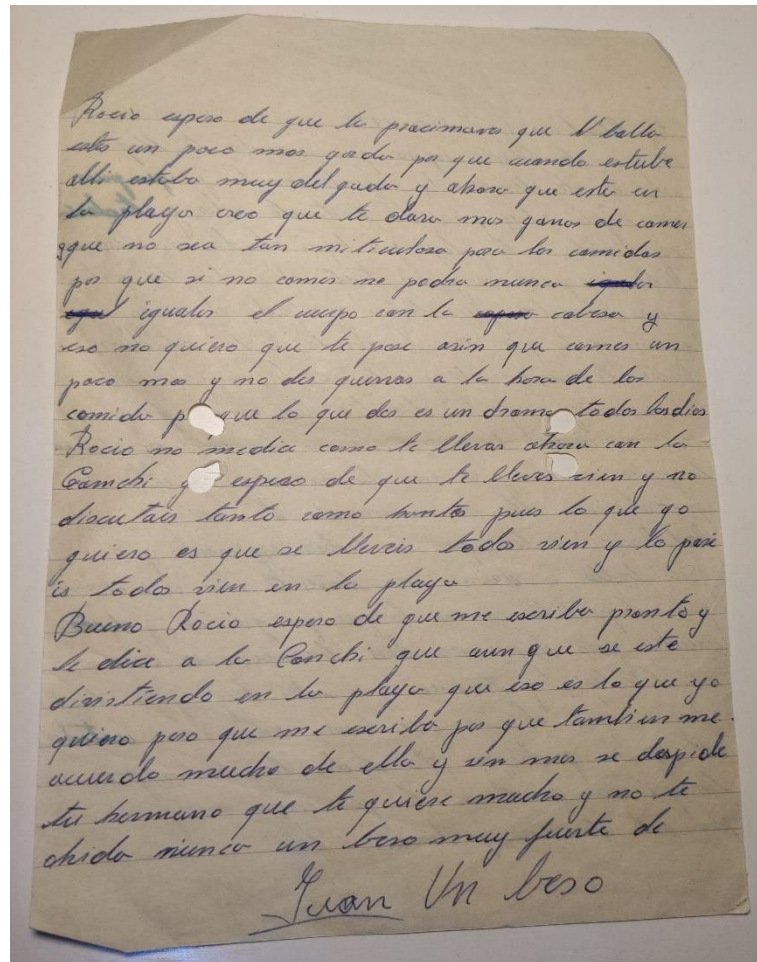 Rocio espero de que la procimaves que V balla
estes un poco mas goda por que cuando estube
alli estaba muy delgada y ahora que esta en
la playa creo que te dara mas ganas de comer
yque no sea tan miticulosa para las comidas
por que si no comes no podra nunca igualar
igual igualar el cuerpo con la cabesa y
eso no quiero que te pase asin que comes un
poco mas y no des guerras a la hora de los
comida que lo que das es un drama todos los dias
Rocio no medice como te llevas ahora con la
Comchi y espero de que te lleves vien y no
discutais tanto como antes pues lo que yo
quiero es que se lleveis todos vien y lo pase
is todos vien en la playa
Bueno Rocio espero de que me escriba pronto y
le dice a la Conchi que aunque se este
divirtiendo en la playa que eso es lo que yo
quiero pero que me escriba por que tambien me
acuerdo mucho de ella y sin mas se despide
tu hermano que te quiere mucho y no te
olvida nunca un beso muy fuerte de
Juan Un beso